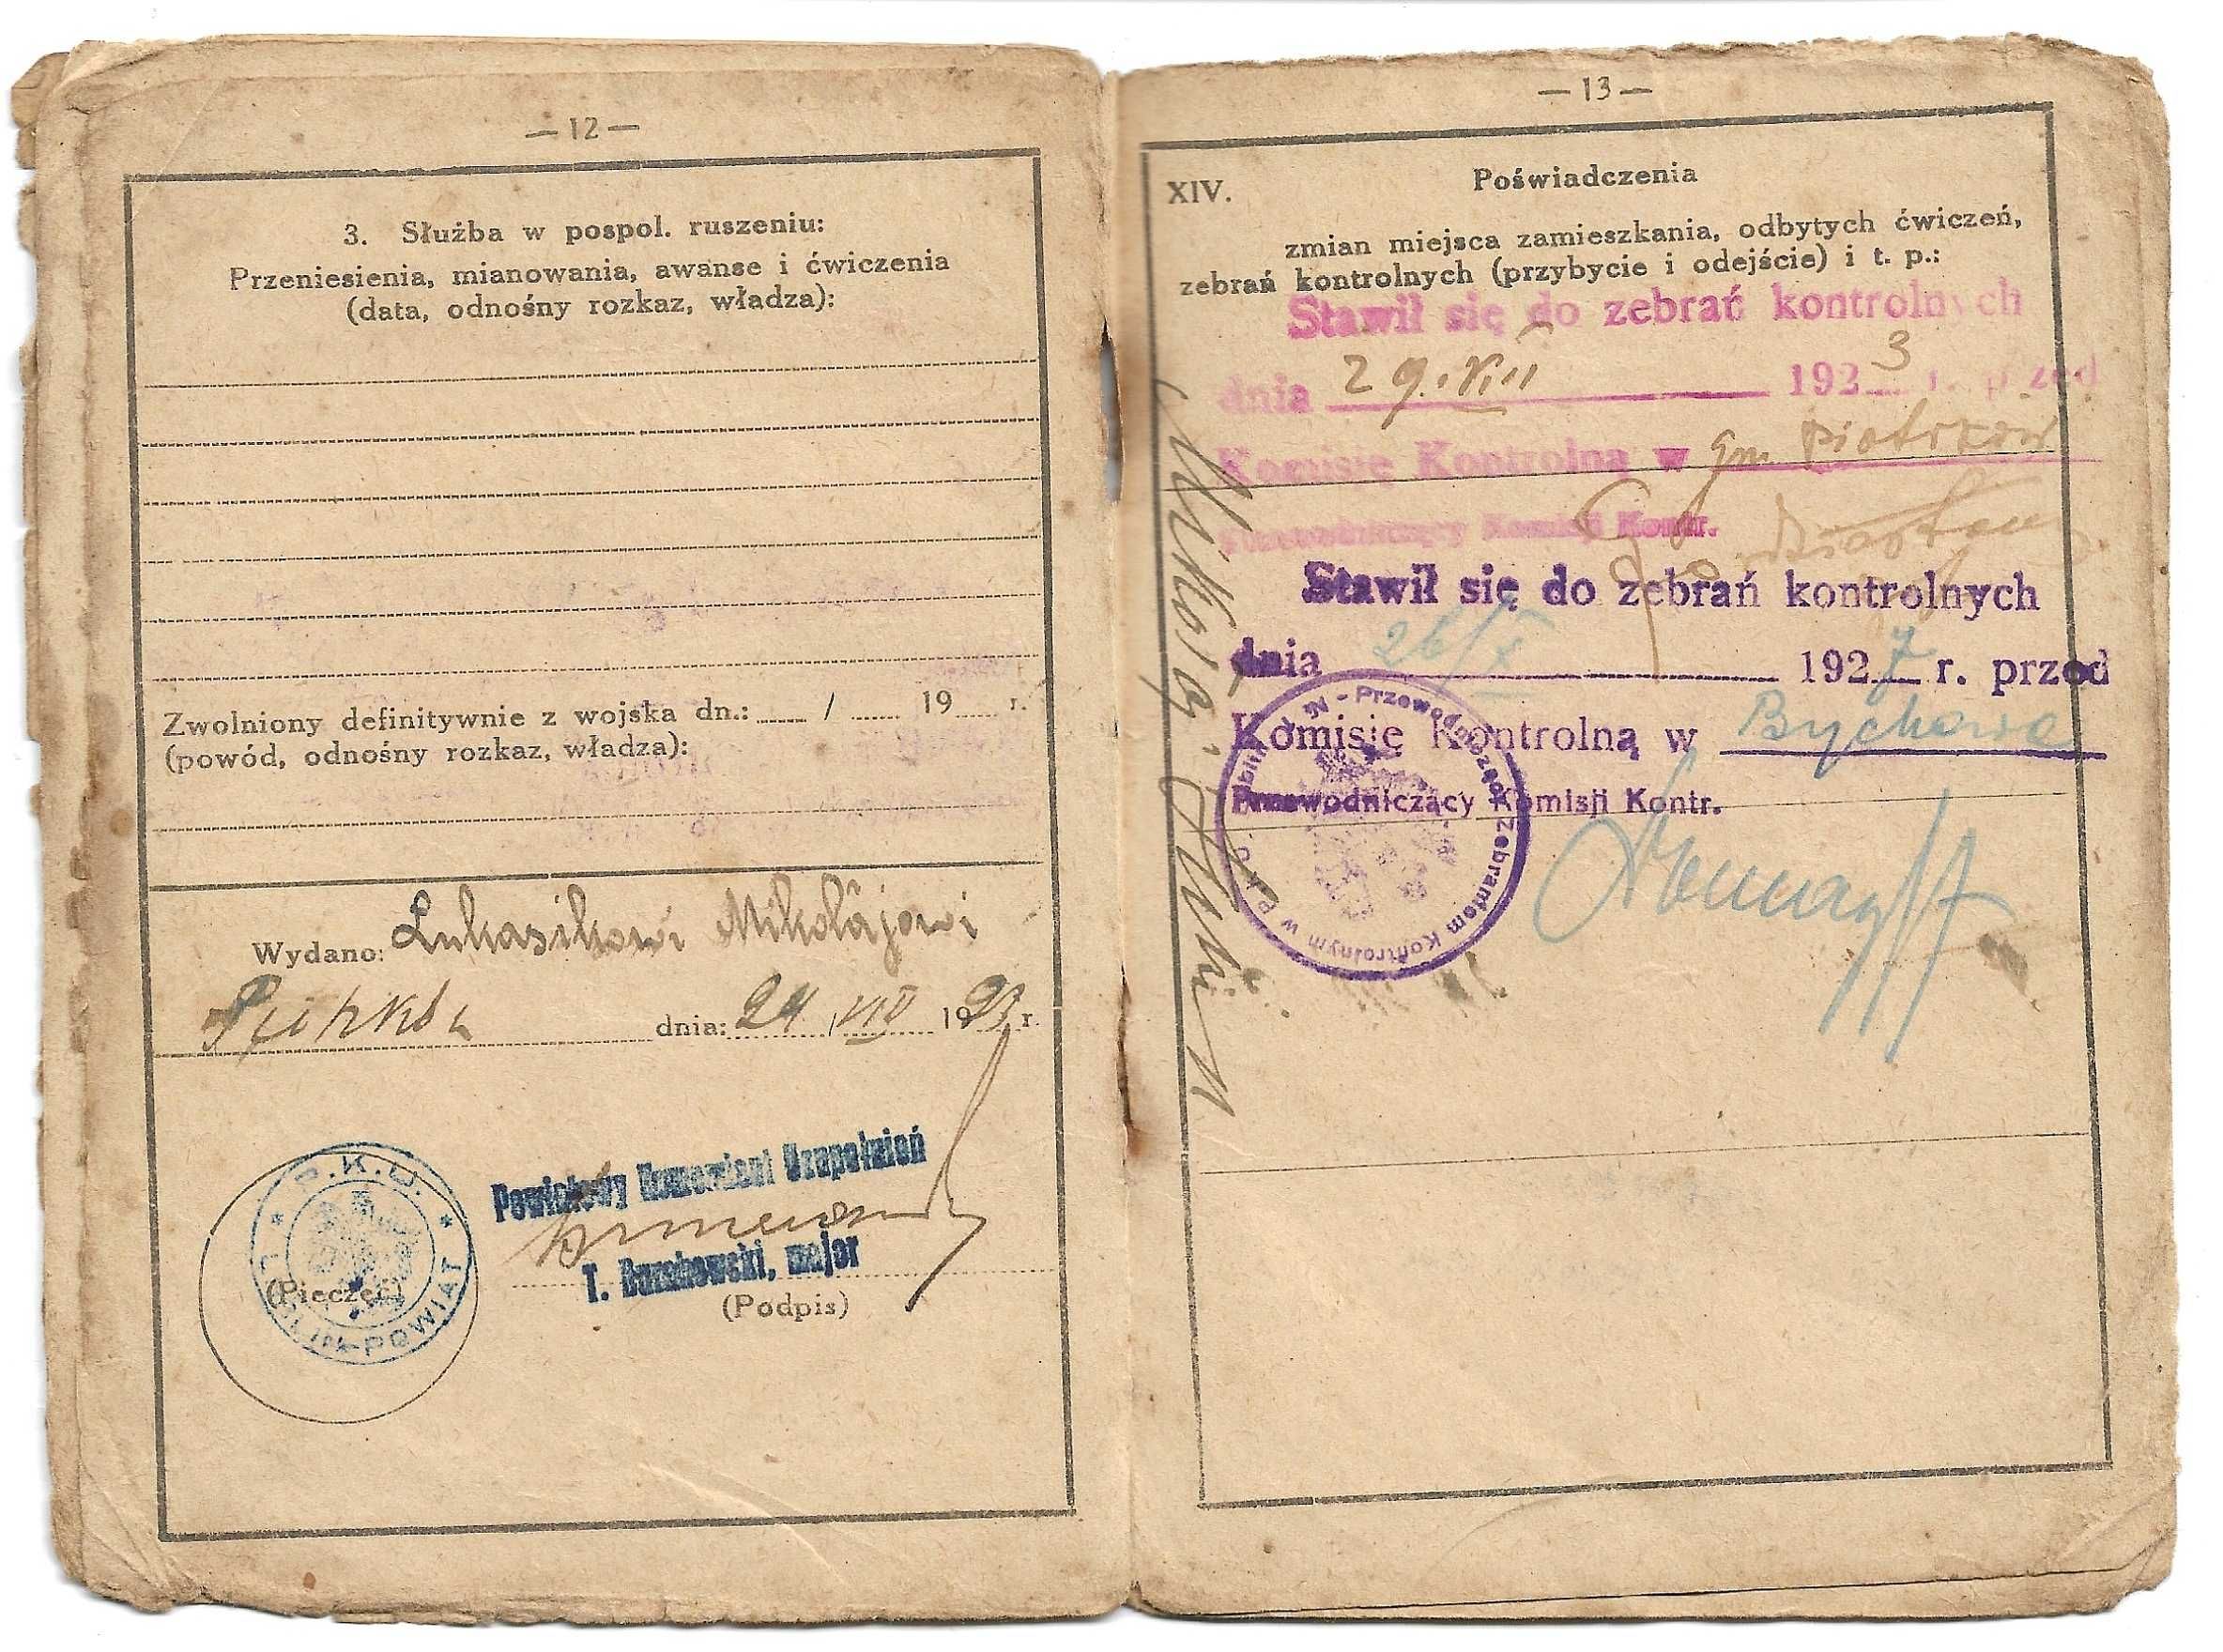 — 12 —
3. Służba w pospol. ruszeniu:
Przeniesienia, mianowania, awanse i ćwiczenia
(data, odnośny rozkaz, władza):
Zwolniony definitywnie z wojska dn.: / 19 r.
(powód, odnośny rozkaz, władza):
Wydano: Łukasikowi Mikołajowi
dnia: 24 / VIII 1923 r.
P.K.U.
LUBLIN-POWIAT
(Pieczęć)
Powiatowy Komendant Uzupełnień
major
(Podpis)
— 13 —
XIV. Poświadczenia
zmian miejsca zamieszkania, odbytych ćwiczeń,
zebrań kontrolnych (przybycie i odejście) i t. p.:
Stawił się do zebrań kontrolnych
dnia 29. VIII 1923 r. przed
Komisję Kontrolną w gm. Piotrków
Przewodniczący Komisji Kontr.
Stawił się do zebrań kontrolnych
dnia 26/X 1927 r. przed
Komisję Kontrolną w Bychawa
Przewodniczący Komisji Kontr.
Przewodniczący Zebraniom Kontrolnym w P.K.U. Lublin
Mikołaj